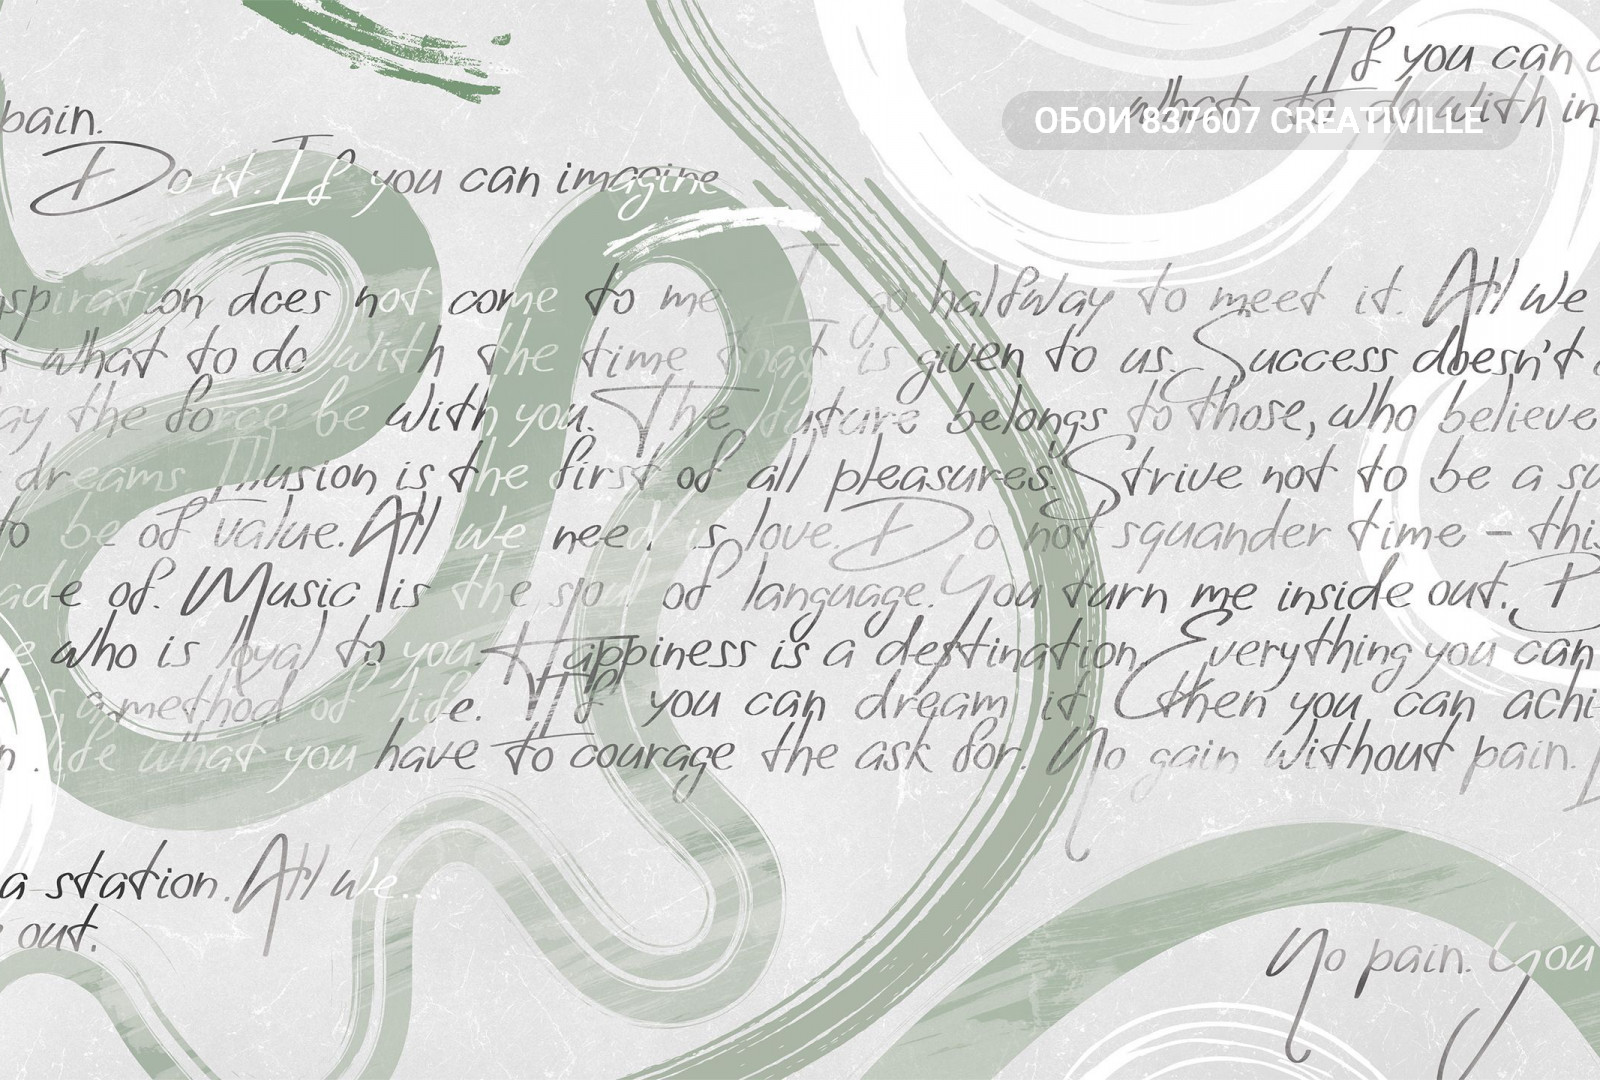 If you can
what to do with
ОБОИ 837607 CREATIVILLE
pain.
Do it. If you can imagine
does not come to me I go halfway to meet it. All we
what to do with the time that is given to us. Success doesn't
the force be with you. The future belongs to those, who believe
dreams. Illusion is the first of all pleasures. Strive not to be a
to be of value. All we need is love. Do not squander time – this
e of. Music is the soul of language. You turn me inside out.
who is loyal to you. Happiness is a destination. Everything you can
is a method of life. If you can dream it, then you can
life what you have to courage the ask for. No gain without pain.
a station. All we...
out.
No pain. You